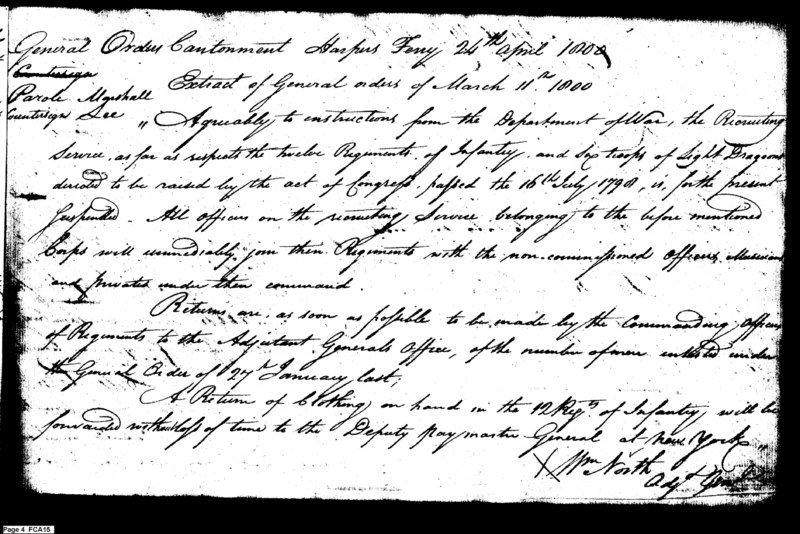 General Orders Cantonment Harpers Ferry 24th April 1800
Countersign
Extract of General orders of March 11th 1800
Parole Marshall
Countersign Lee
" Agreeably to instructions from the Department of War, the Recruiting
Service, as far as respects the twelve Regiments of Infantry, and six troops of Light Dragoons
directed to be raised by the act of Congress, passed the 16th July 1798, is, for the present
Suspended. All officers on the recruiting Service belonging to the before mentioned
Corps will immediately join their Regiments with the non-commissioned Officers, Musicians
and privates under their command.
Returns are as soon as possible to be made by the Commanding Officers
of Regiments to the Adjutant Generals Office, of the number of men enlisted under
the General Order of 27th January last,
A Return of Clothing on hand in the 12 Regts of Infantry, will be
forwarded without loss of time to the Deputy Paymaster General at New York "
Wm North
Adjt Genl
Page 4 FCA15